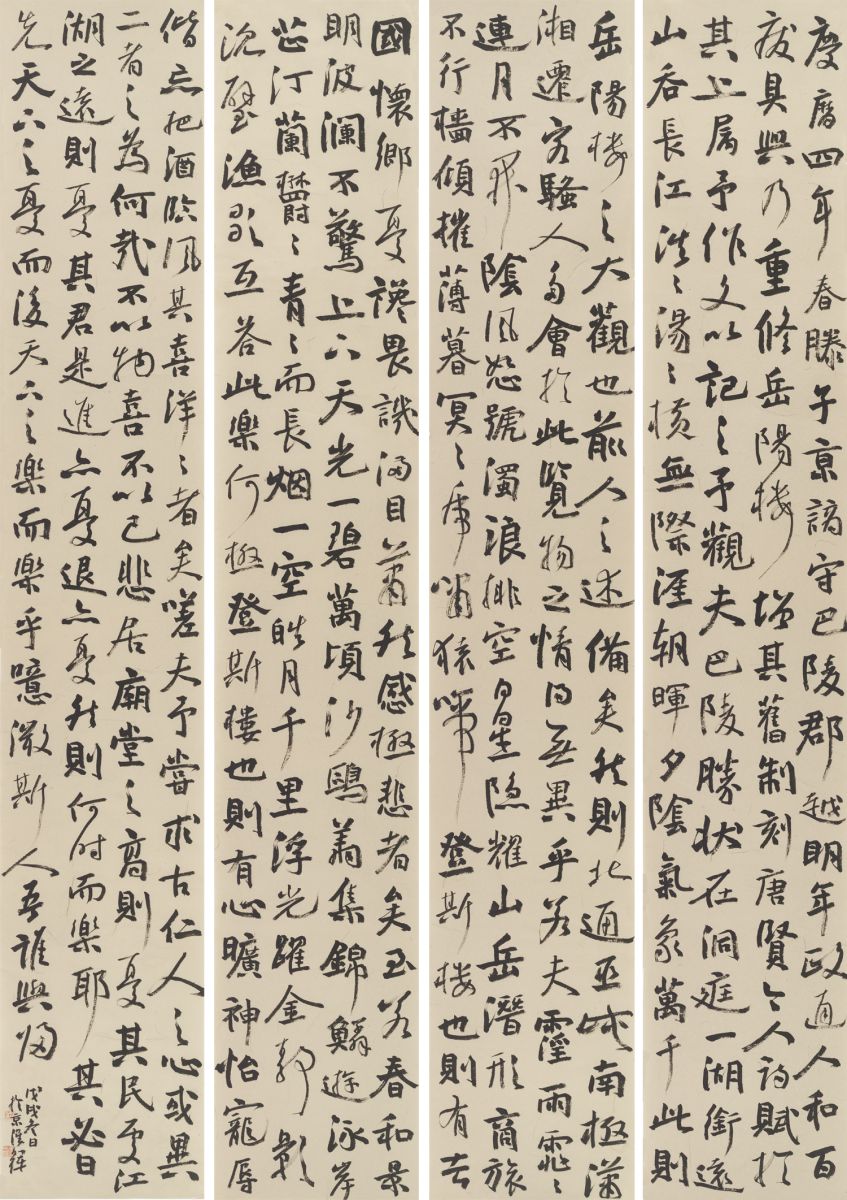 慶曆四年春滕子京謫守巴陵郡越明年政通人和百
廢具興乃重修岳陽楼增其舊制刻唐賢今人詩賦於
其上屬予作文以記之予觀夫巴陵勝狀在洞庭一湖銜遠
山吞長江浩々湯々橫無際涯朝暉夕陰氣象萬千此則
岳陽楼之大觀也前人之述備矣然則北通巫峽南極瀟
湘遷客騷人多會於此覽物之情得無異乎若夫霪雨霏々
連月不開陰風怒號濁浪排空日星隱耀山岳潛形商旅
不行檣傾摧薄暮冥々虎嘯猿啼登斯楼也則有去
國懷鄉憂讒畏譏滿目蕭然感極悲者矣至若春和景
明波瀾不驚上下天光一碧萬頃沙鷗翔集錦鱗游泳岸
芷汀蘭鬱々青々而長烟一空皓月千里浮光躍金靜影
沉璧漁歌互答此樂何極登斯樓也則有心曠神怡寵辱
偕忘把酒臨風其喜洋々者矣嗟夫予嘗求古仁人之心或異
二者之為何哉不以物喜不以己悲居廟堂之高則憂其民處江
湖之遠則憂其君是進亦憂退亦憂然則何時而樂耶其必曰
先天下之憂而後天下之樂而樂乎噫微斯人吾誰與歸
戊戌冬日
於京